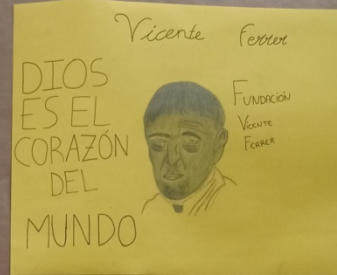 Vicente Ferrer
DIOS
ES EL
CORAZÓN
DEL
MUNDO
FUNDACIÓN
VICENTE
FERRER